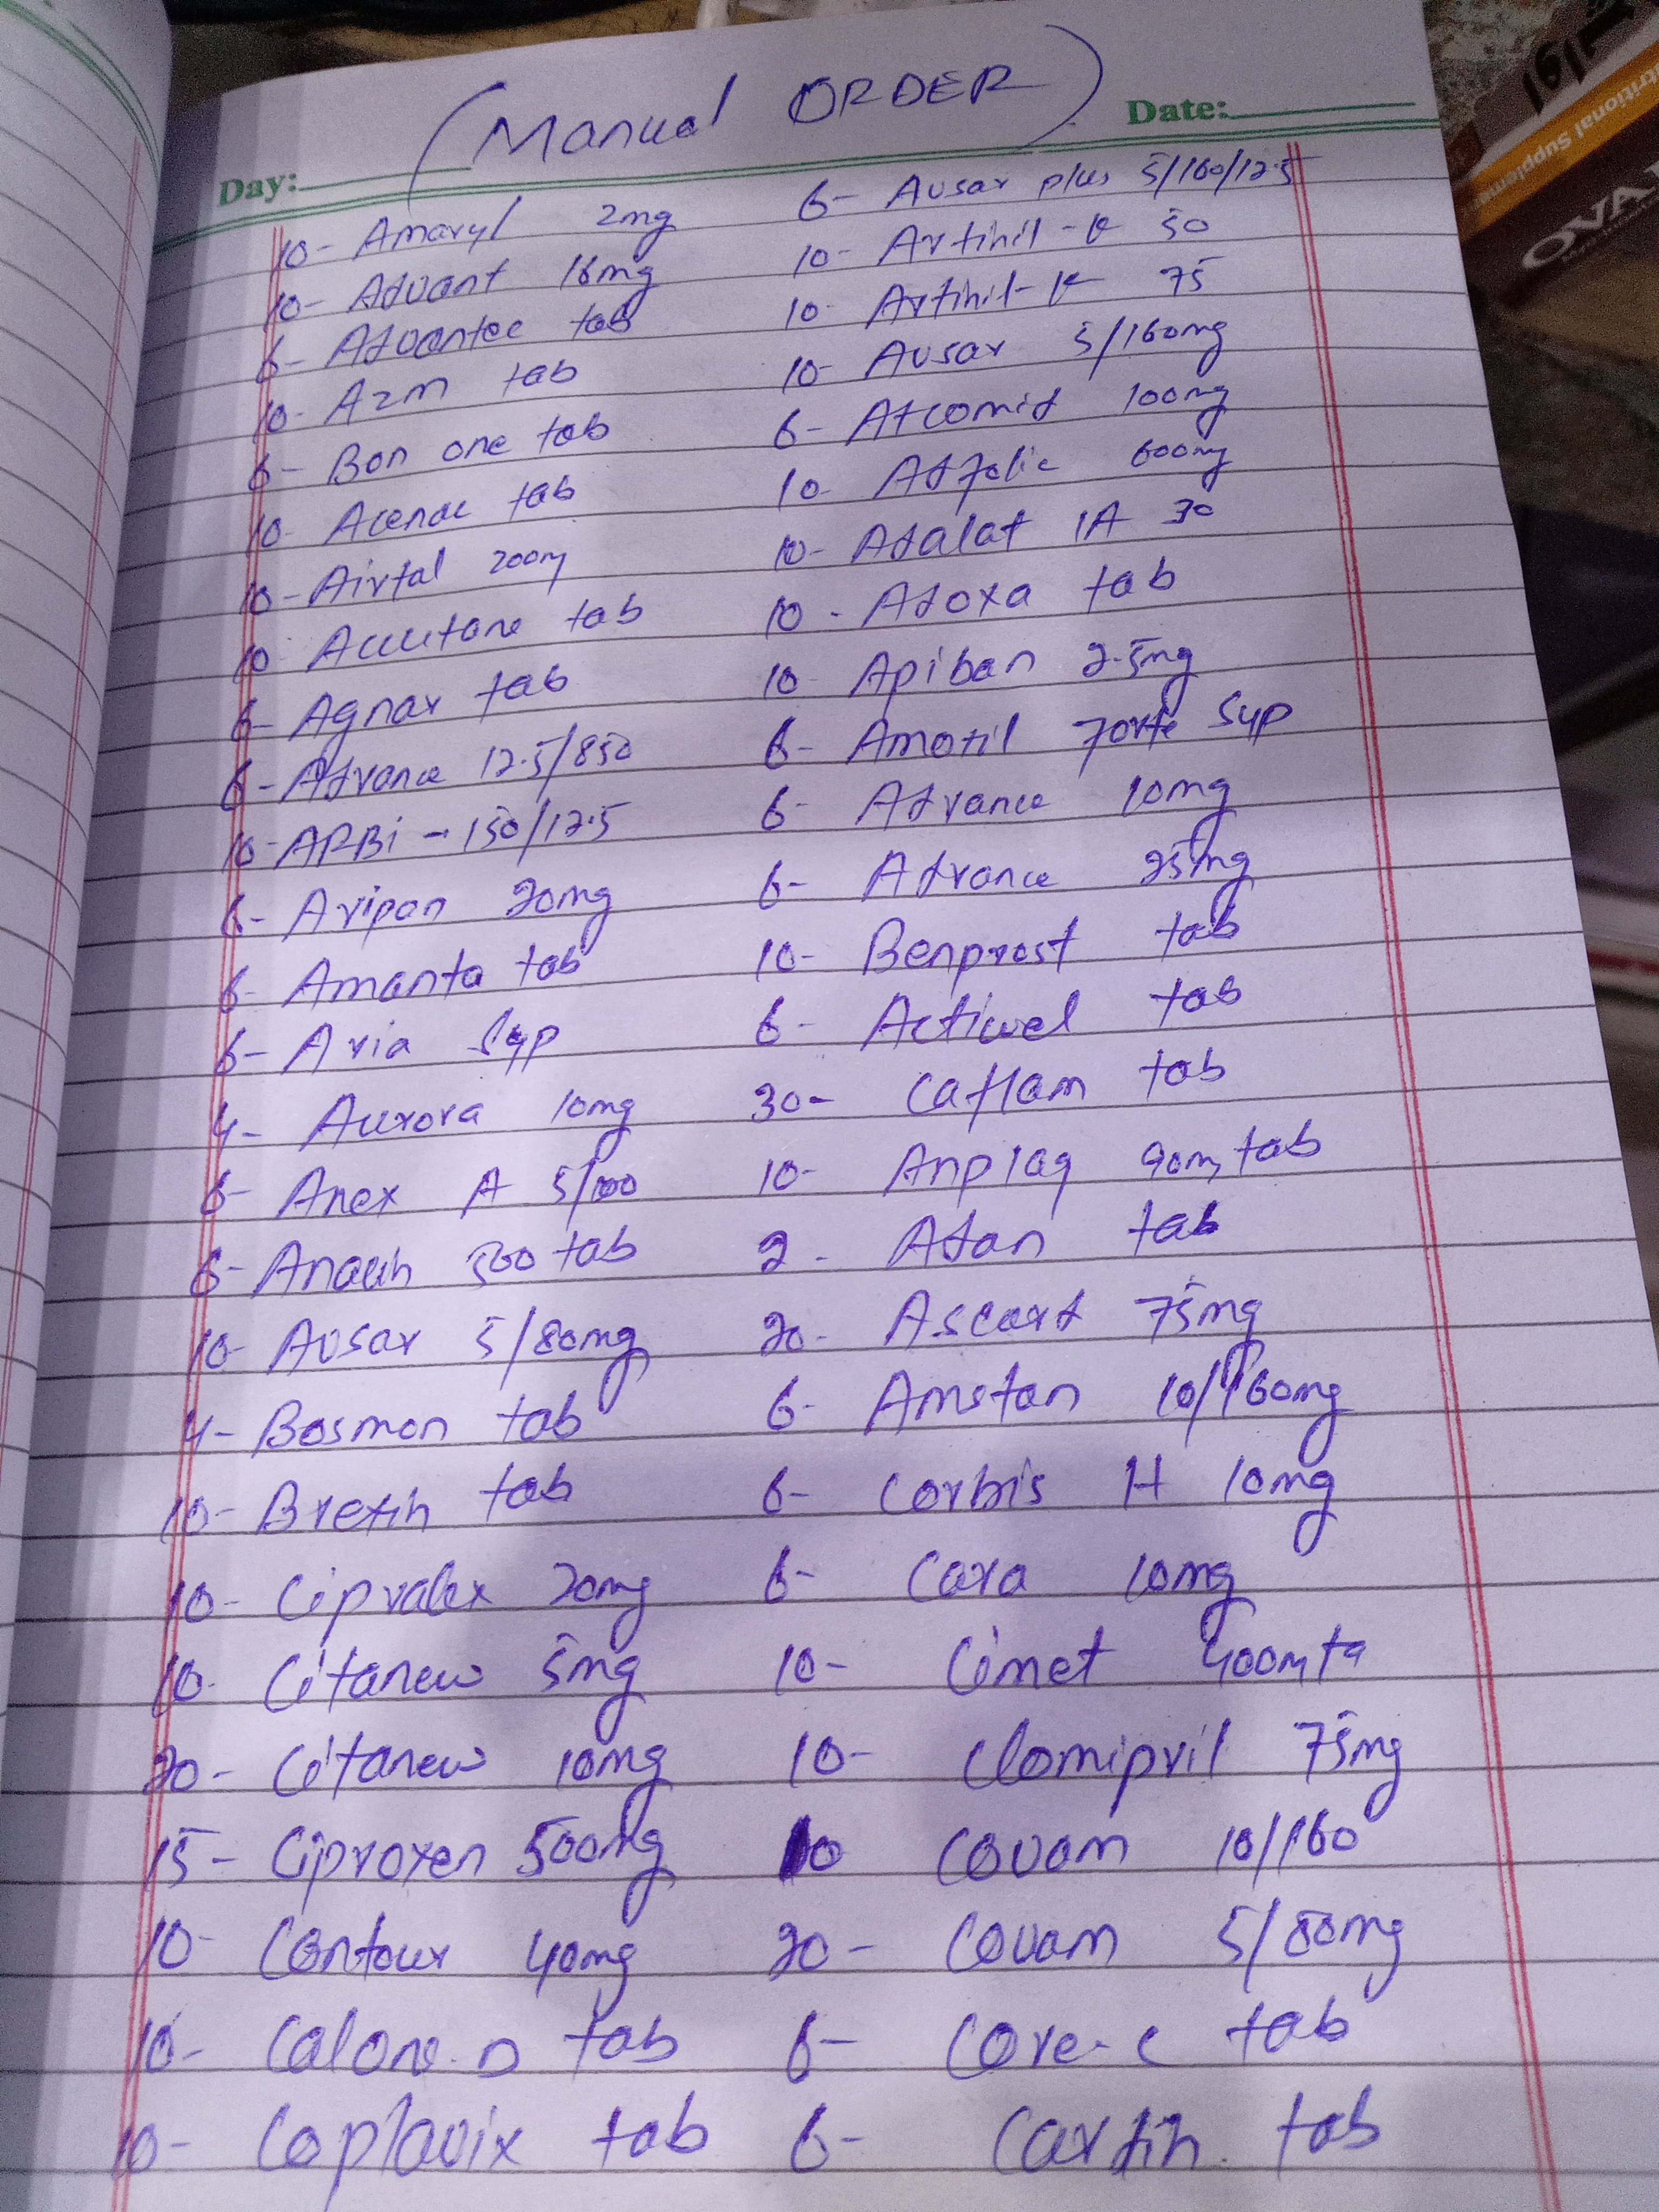 (Manual ORDER)
Day:
Date:
10- Amaryl 2mg
10- Advant 16mg
6- Advantec tab
10- Azm tab
6- Bon one tab
10- Acenac tab
10- Airtal 200m
10 Accutane tab
6- Agnar tab
6- Advance 12.5/850
10- ARBi - 150/12.5
6- Aripan 20mg
6- Amanta tab
6- Aria Syp
4- Aurora 10mg
6- Anex A 5/100
6- 500 tab
10- Avsar 5/80mg
4- Bosmon tab
10- Brexin tab
10- Cipralex 20mg
10- Citanew 5mg
20- Citanew 10mg
15- Ciproxen 500mg
10- Contour 40mg
10- Calone.D tab
10- Coplavix tab
6- Avsar plus 5/160/12.5
10- Artihil-K 50
10- Artihil-K 75
10- Avsar 5/160mg
6- Atcomid 100mg
10- Adfolic 600mg
10- Adalat LA 30
10- Adoxa tab
10- Apiban 2.5mg
6- Amotil forte Syp
6- Advance 10mg
6- Advance 25mg
10- Benprost tab
6- Actiwel tab
30- Caflam tab
10- Anplag 90m tab
2- Adan tab
20- Ascard 75mg
6- Amstan 10/160mg
6- Corbis H 10mg
6- Cara 10mg
10- Cimet 400m ta
10- Clomipril 75mg
10 Covam 10/160
20- Covam 5/80mg
6- Core-c tab
6- Cardin tab
OVA
tritional Supplement